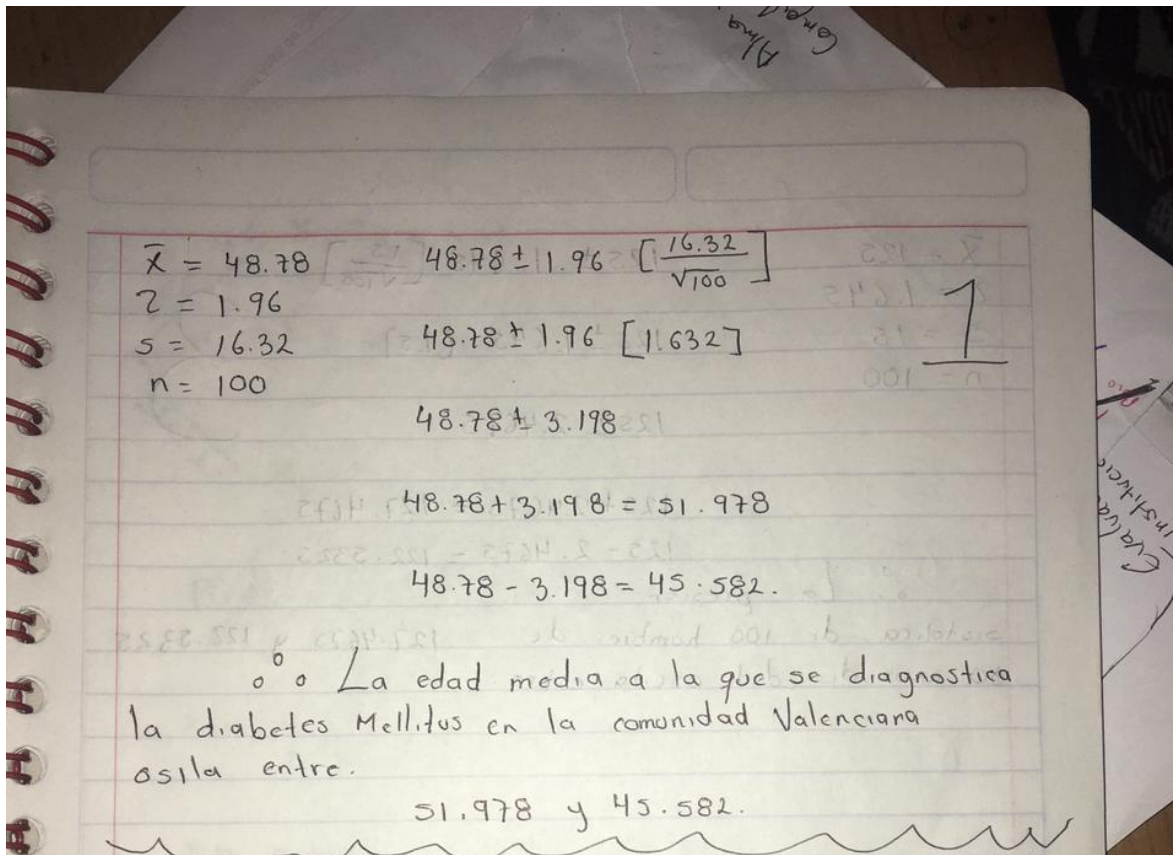 Alma
x̄ = 48.78    48.78 ± 1.96 [16.32/√100]
z = 1.96
s = 16.32    48.78 ± 1.96 [1.632]
1
n = 100
48.78 ± 3.198
48.78 + 3.198 = 51.978
48.78 - 3.198 = 45.582.
∴ La edad media a la que se diagnostica
la diabetes Mellitus en la comunidad Valenciana
osila entre.
51.978 y 45.582.